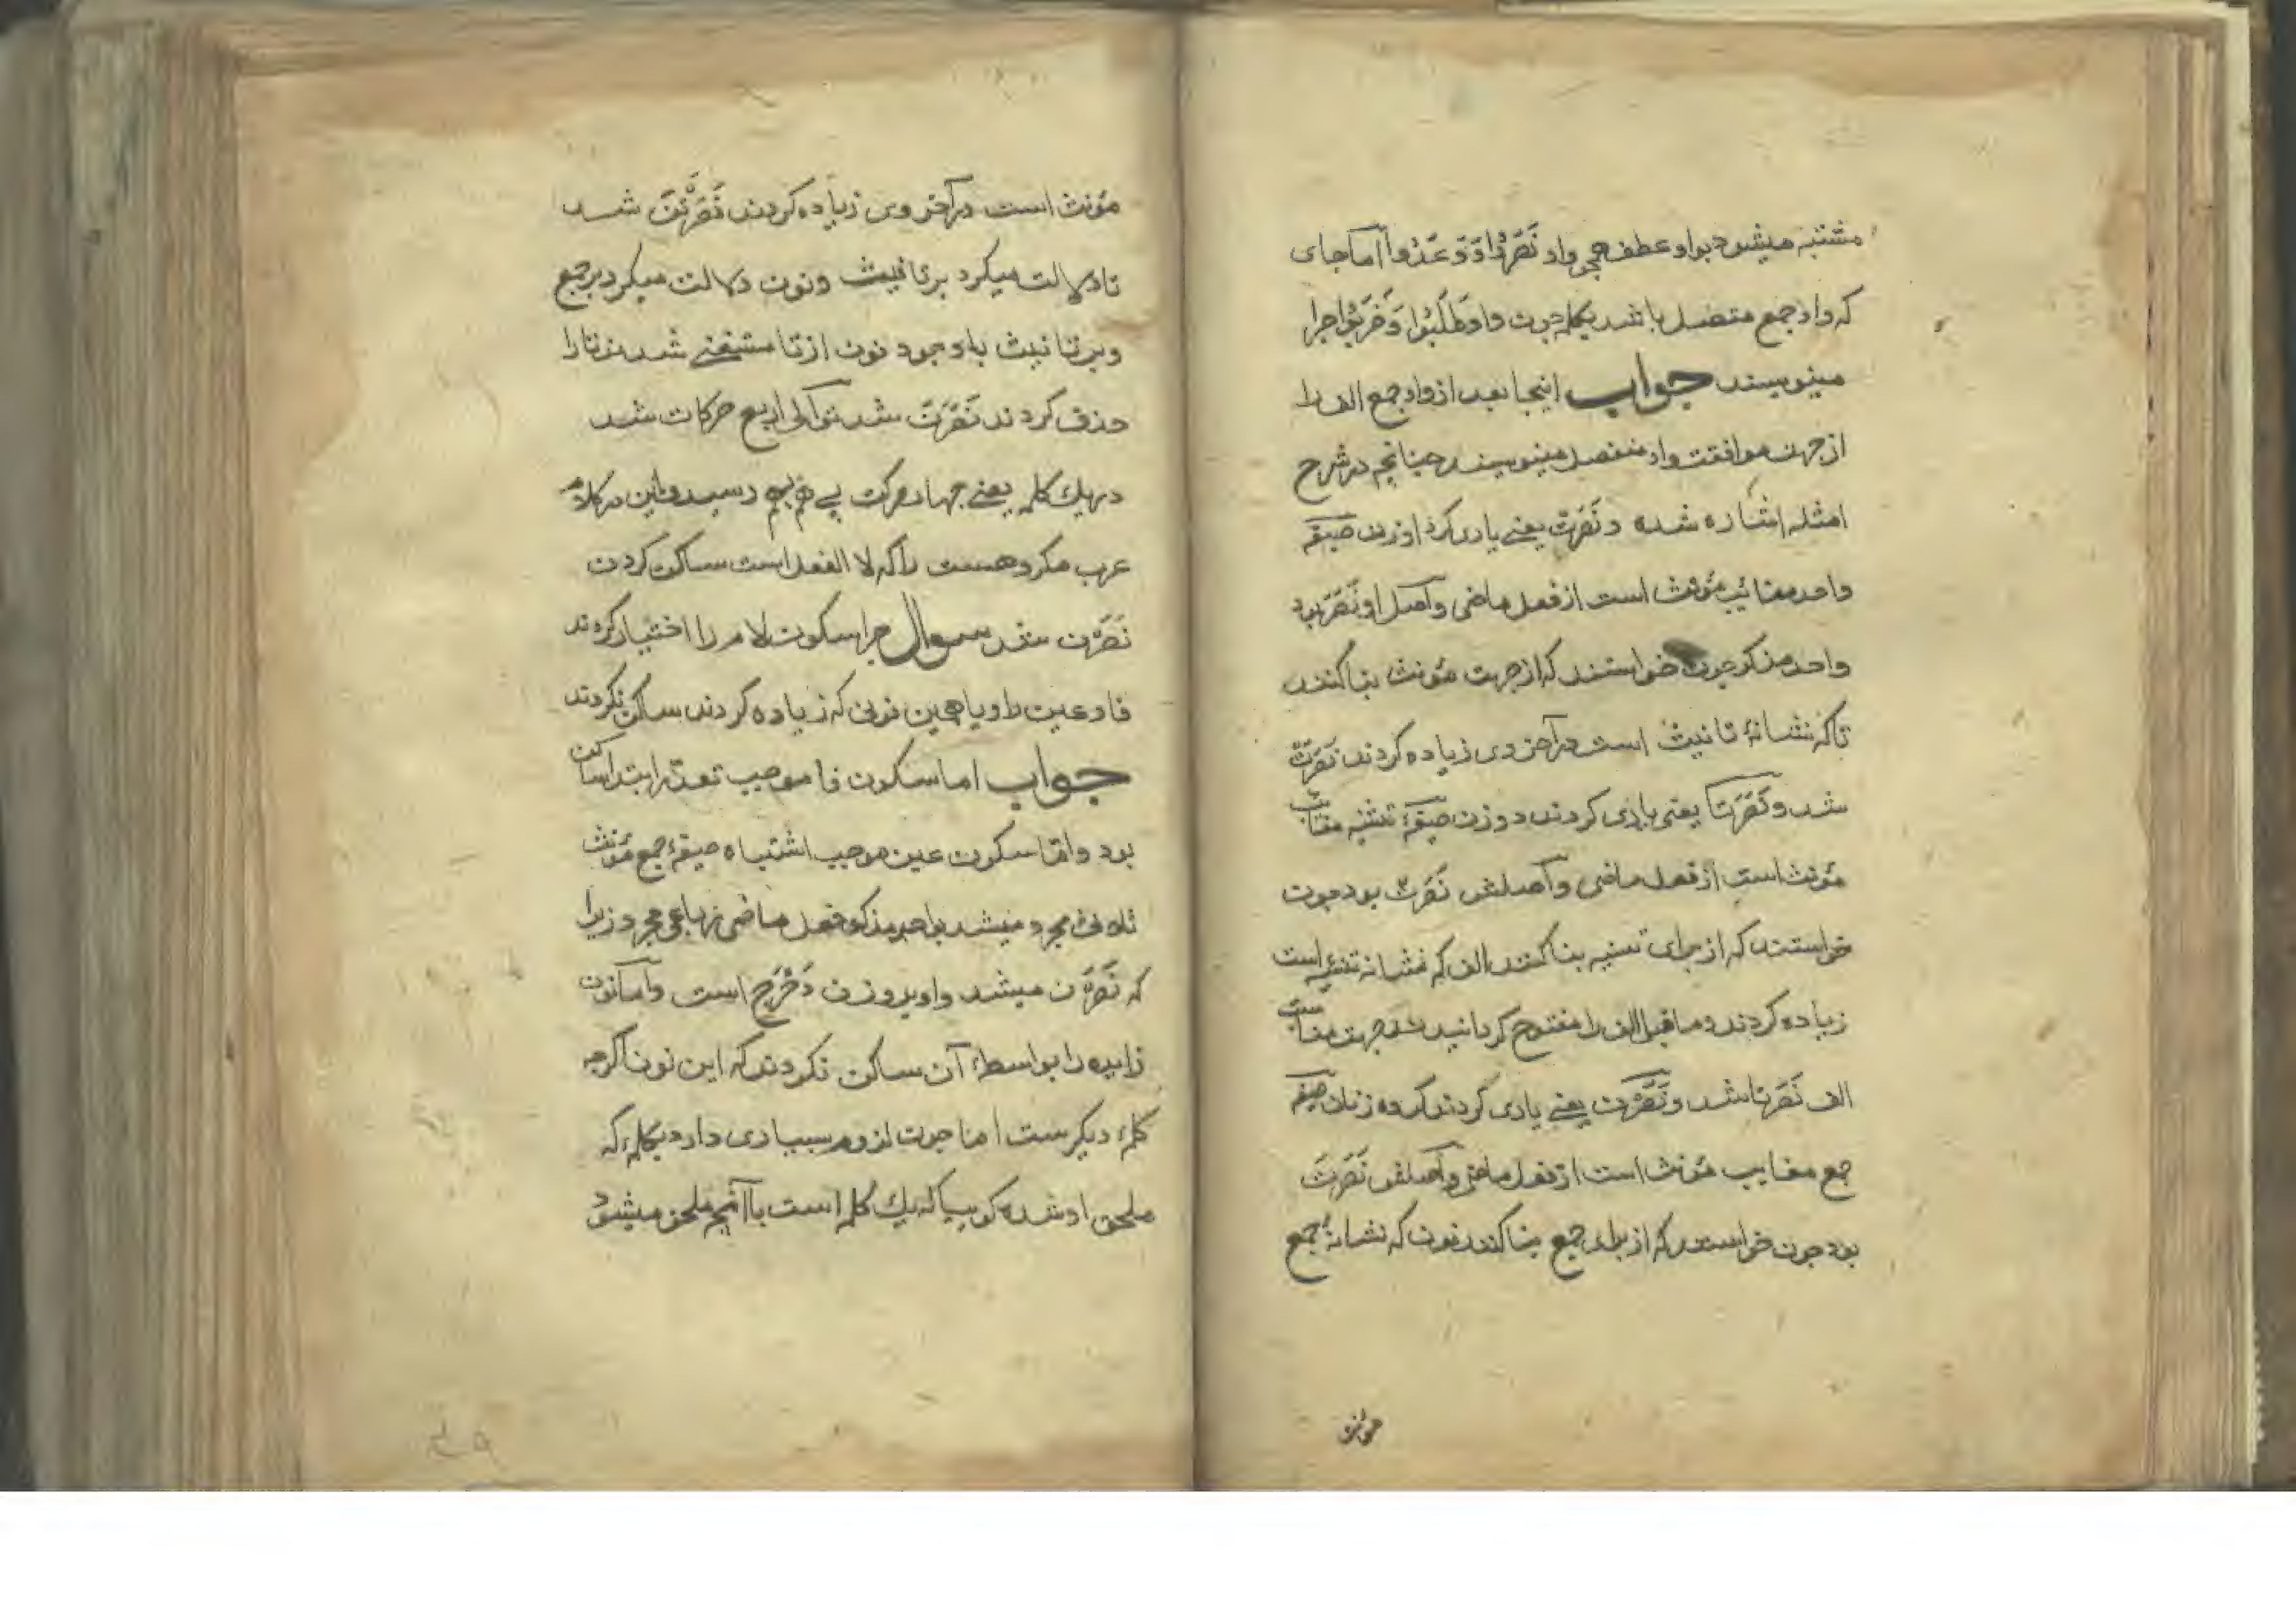 مشتبه میشود بواو عطف همچو واو نَصَرُوا وَ وَعَدُوا اما جای
که واو جمع متصل باشد بکلمه چون واو طَلَبُوا وَ ضَرَبُوا چرا
مینویسند جواب اینجا بعد از واو جمع الف را
از جهت موافقت واو منفصل مینویسند چنانچه در شرح
امثله اشاره شده و نَصَرَتْ یعنے یاری کرد او زن صیغه
واحد مغائب مؤنث است از فعل ماضی و اصل او نَصَرَ بود
واحد مذکر چون خواستند که از جهت مؤنث بنا کنند
تا که نشانهٔ تانیث است در آخر وی زیاده کردند نَصَرَتْ
شد و نَصَرَتَا یعنی یاری کردند دو زن صیغهٔ تثنیه مغایب
مؤنث است از فعل ماضی و اصلش نَصَرَتْ بود چون
خواستند که از برای تسنیه بنا کنند الف که نشانه تثنیه است
زیاده کردند و ماقبل الف را مفتوح کردانیدند جهت مناسبت
الف نَصَرَتا شد و نَصَرْنَ یعنے یاری کردند کروه زنان صیغه
جمع مغایب مؤنث است از فعل ماضی و اصلش نَصَرَتْ
بود چون خواستند که از برای جمع بنا کنند نون که نشانهٔ جمع
مؤنث
مؤنث است در آخر وی زیاده کردند نَصَرَتْنَ شد
تا دلالت میکرد بر تانیث و نون دلالت میکرد بر جمع
و بر تانیث با وجود نون از تا مستغنے شدند تا را
حذف کردند نَصَرَنَ شد توالی اربع حرکات شد
در یک کلمه یعنے چهار حرکت پے هم بهم رسید و این در کلام
عرب مکروهست را که لا الفعل است ساکن کردن
نَصَرْنَ شد سوال چرا سکون لام را اختیار کردند
فا و عین را و یا همین نونی که زیاده کردند ساکن نکردند
جواب اما سکون فا موجب تعذر ابتدا ساکن
بود و اما سکون عین موجب اشتباه صیغهٔ جمع مؤنث
ثلاثی مجرد میشد بواحد مذکر فعل ماضی رباعی مجرد زیرا
که نَصْرَنَ میشد و او بر وزن دَحْرَجَ است و اما نون
زایده را بواسطهٔ آن ساکن نکردند که این نون اکرچه
کلمهٔ دیکر ست اما چون لزوم بسیاری دارد بکلمهٔ که
ملحق او شده کوییا که یک کلمه است با آنچه ملحق میشود